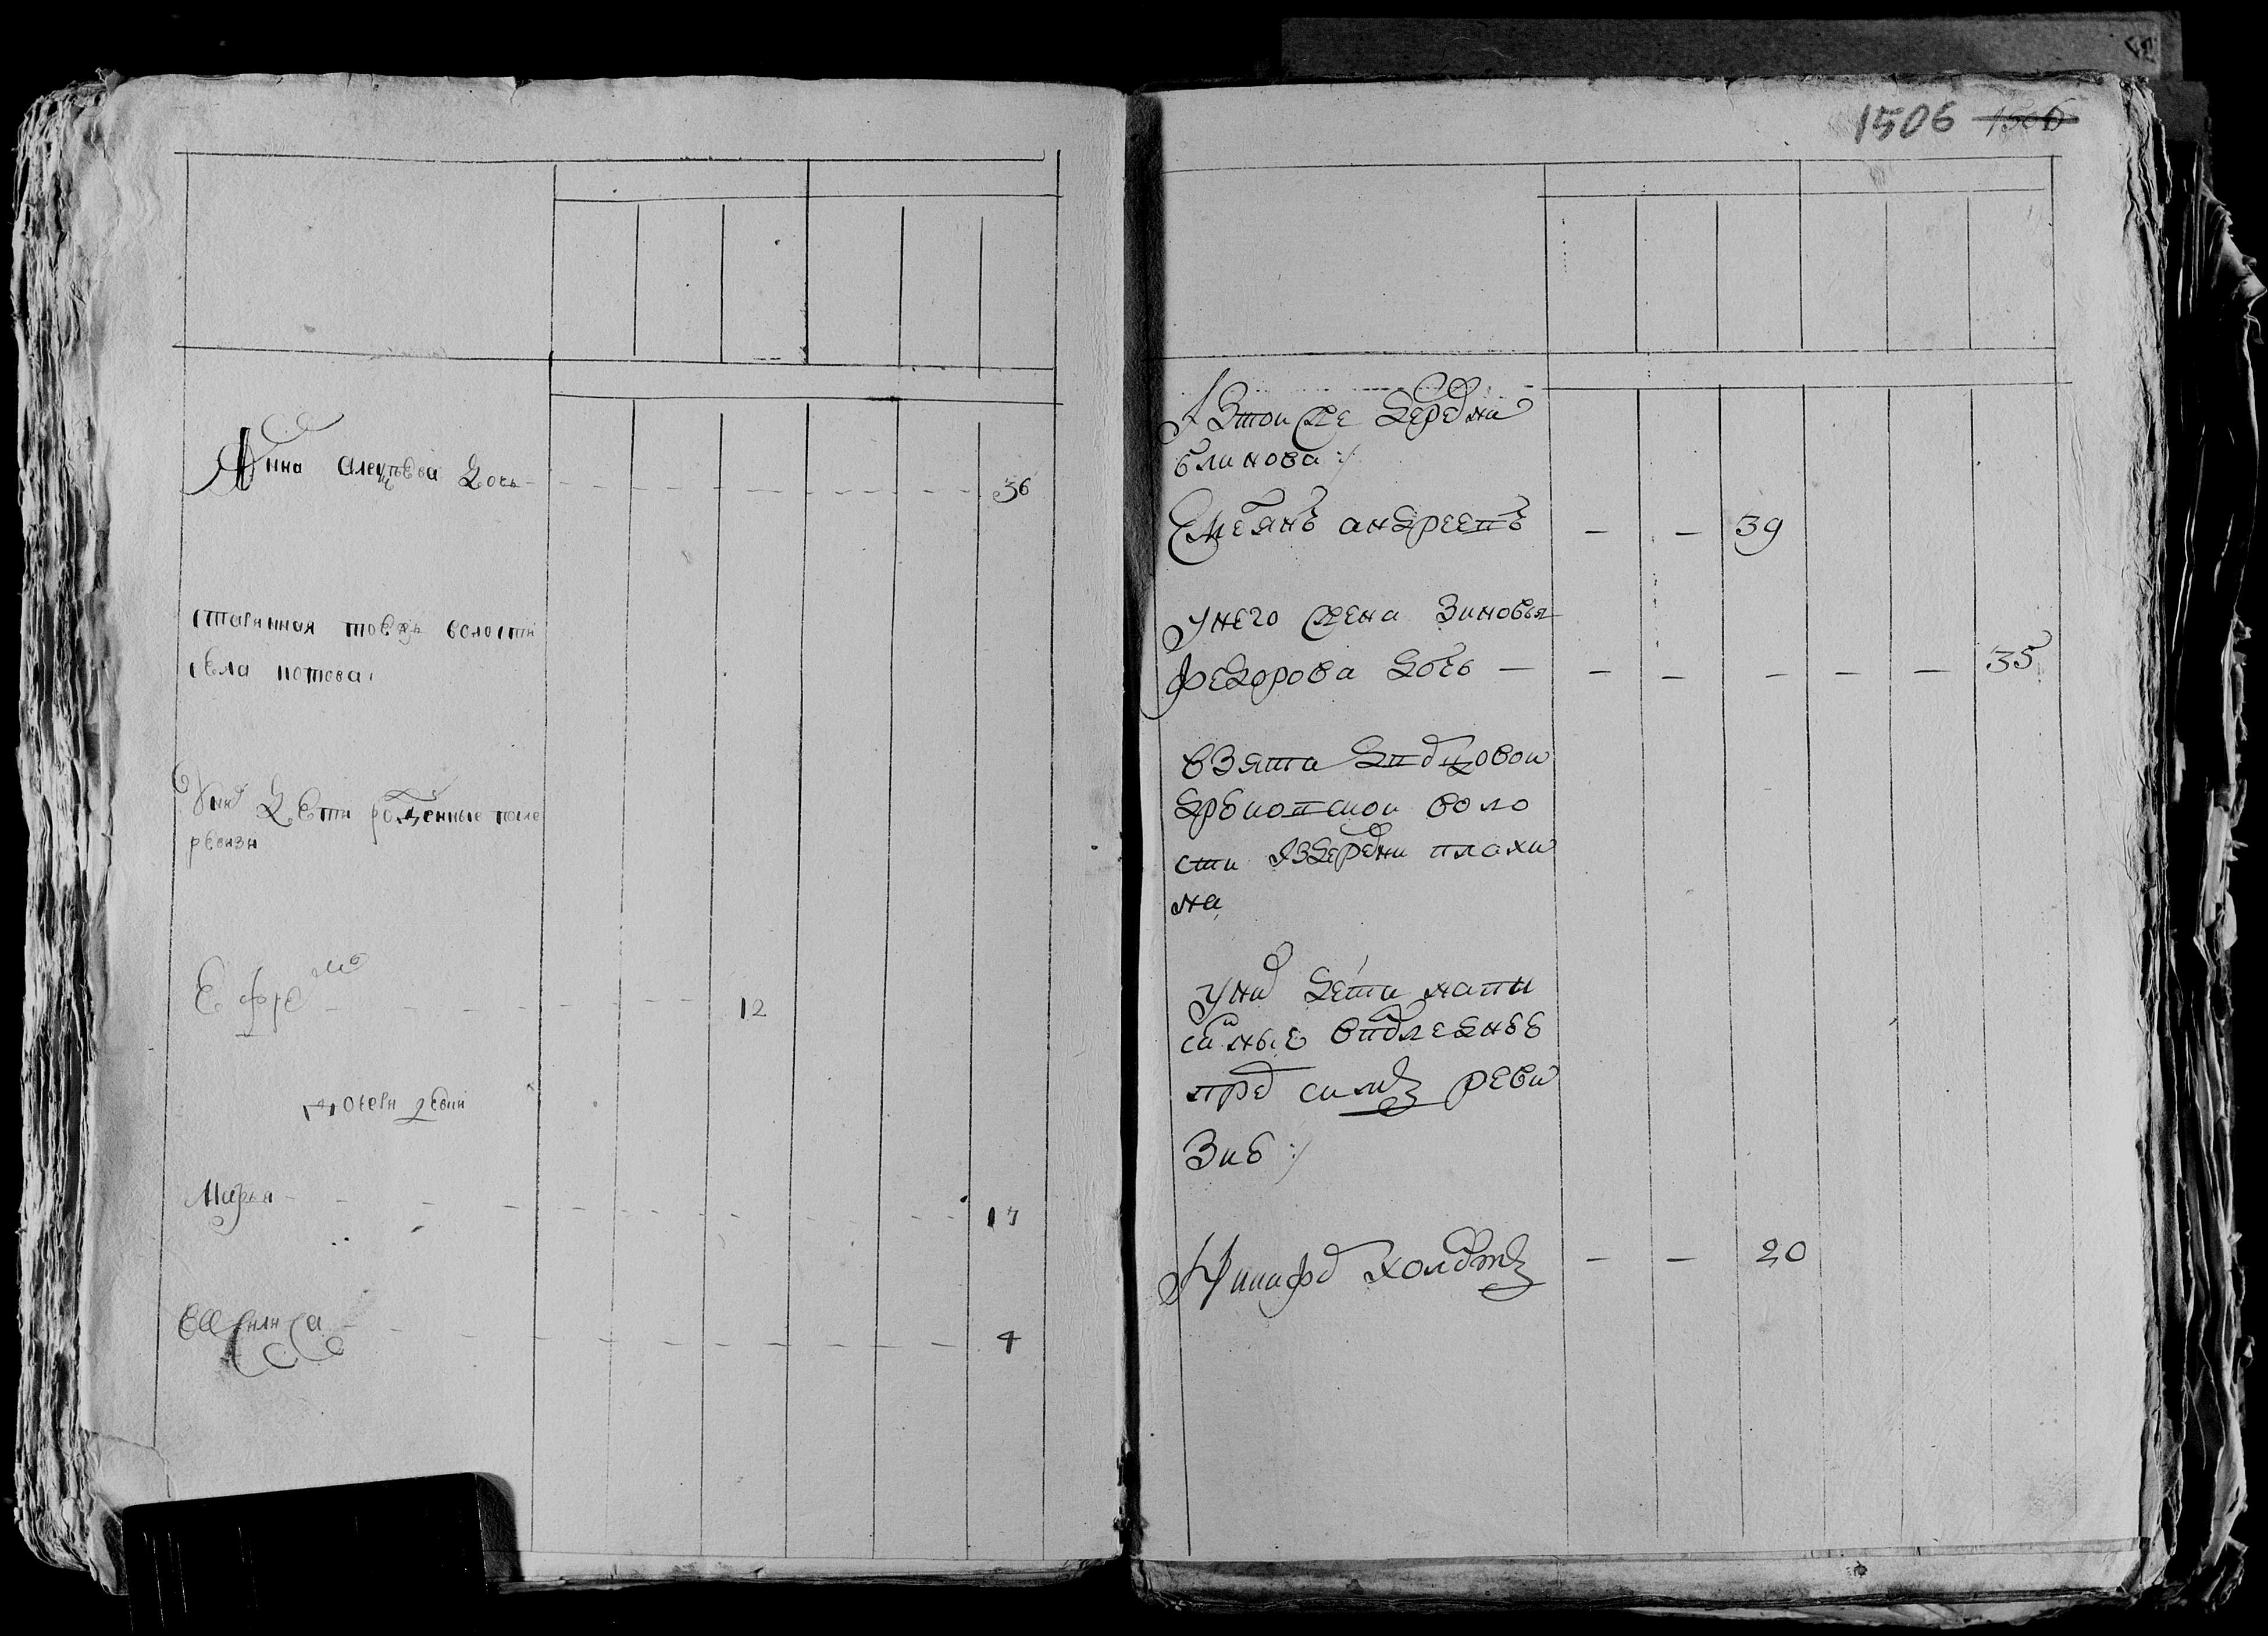 Анна алеѯѣева дочь 36
старинная тоеже волости
села котова
У них дѣти рожденные после
ревизи
Ефремъ 12
дочери девки
Марья 17
Василиса 4
1506 1506
В тои же деревни
блинова
Емельянъ андреевъ 39
у него жена зиновья
федорова дочь 35
взята дворцовои
сти из деревни плахи
на
у них дети напи
санные впоследнеи
пред симъ реви
зиѣ
Никифоръ холостъ 20